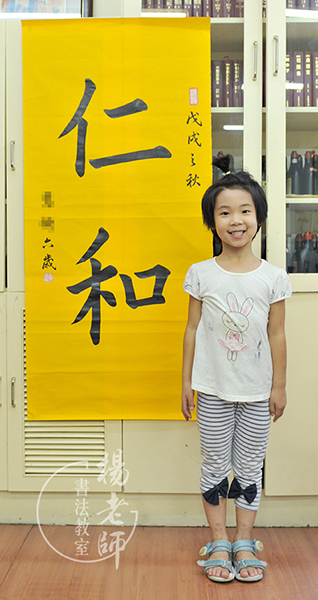 仁和
戊戌之秋
六歲
楊老師
書法教室